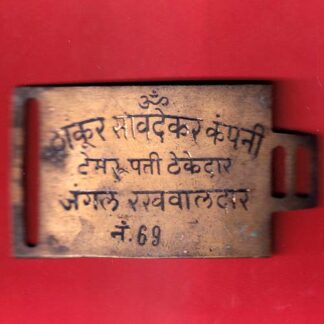 ॐ
ठाकूर सावदेकर कंपनी
टेमरू पती ठेकेदार
जंगल रखवालदार
नं. 69